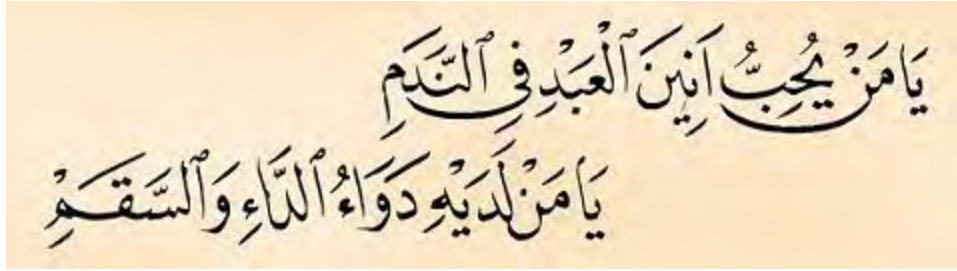 يَا مَنْ يُحِبُّ اَنِينَ الْعَبْدِ فِي النَّدَمِ
يَا مَنْ لَدَيْهِ دَوَاءُ الدَّاءِ وَالسَّقَمِ